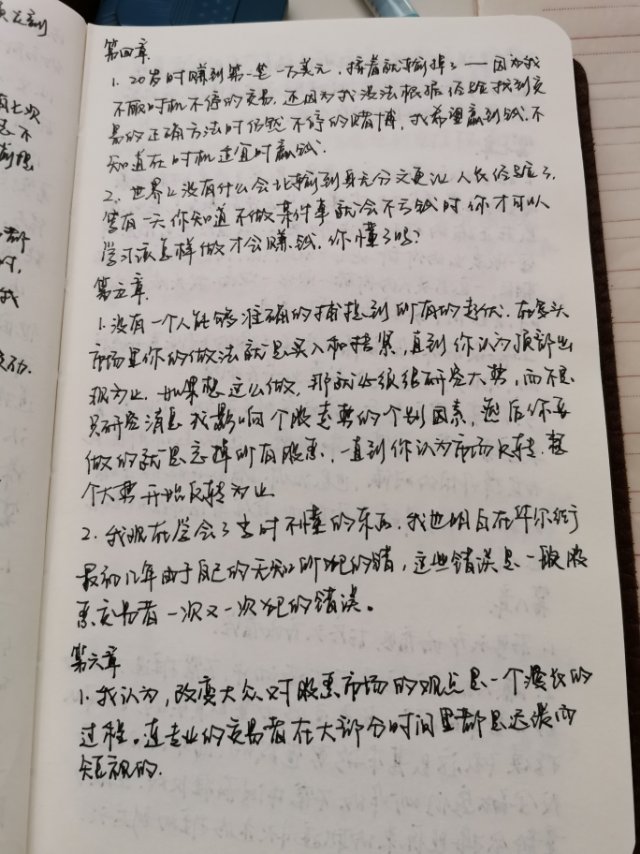 第四章.
1. 20岁时赚到第一笔一万美元, 接着就输掉了——因为我
不顾时机不停的交易. 还因为我没法根据经验找到交
易的正确方法时仍然不停的赌博, 我希望赢到钱, 不
知道在时机适宜时赢钱.
2. 世界上没有什么会比输到身无分文更让人长经验了.
当有一天你知道不做某件事就会不亏钱时你才可以
学习该怎样做才会赚钱. 你懂了吗?
第五章.
1. 没有一个人能够准确的捕捉到所有的起伏. 在多头
市场里你的做法就是买入和持紧, 直到你认为顶部出
现为止. 如果想这么做, 那就必须得研究大势, 而不是
只研究消息或影响个股走势的个别因素, 然后你要
做的就是忘掉所有股票, 一直到你认为市场反转, 整
个大势开始反转为止.
2. 我现在学会了当时不懂的东西. 我也明白在华尔街
最初几年由于自己的无知所犯的错, 这些错误是一般股
票交易者一次又一次犯的错误。
第六章
1. 我认为, 改变大众对股票市场的观点是一个漫长的
过程。连专业的交易者在大部分时间里都是迟缓而
短视的.